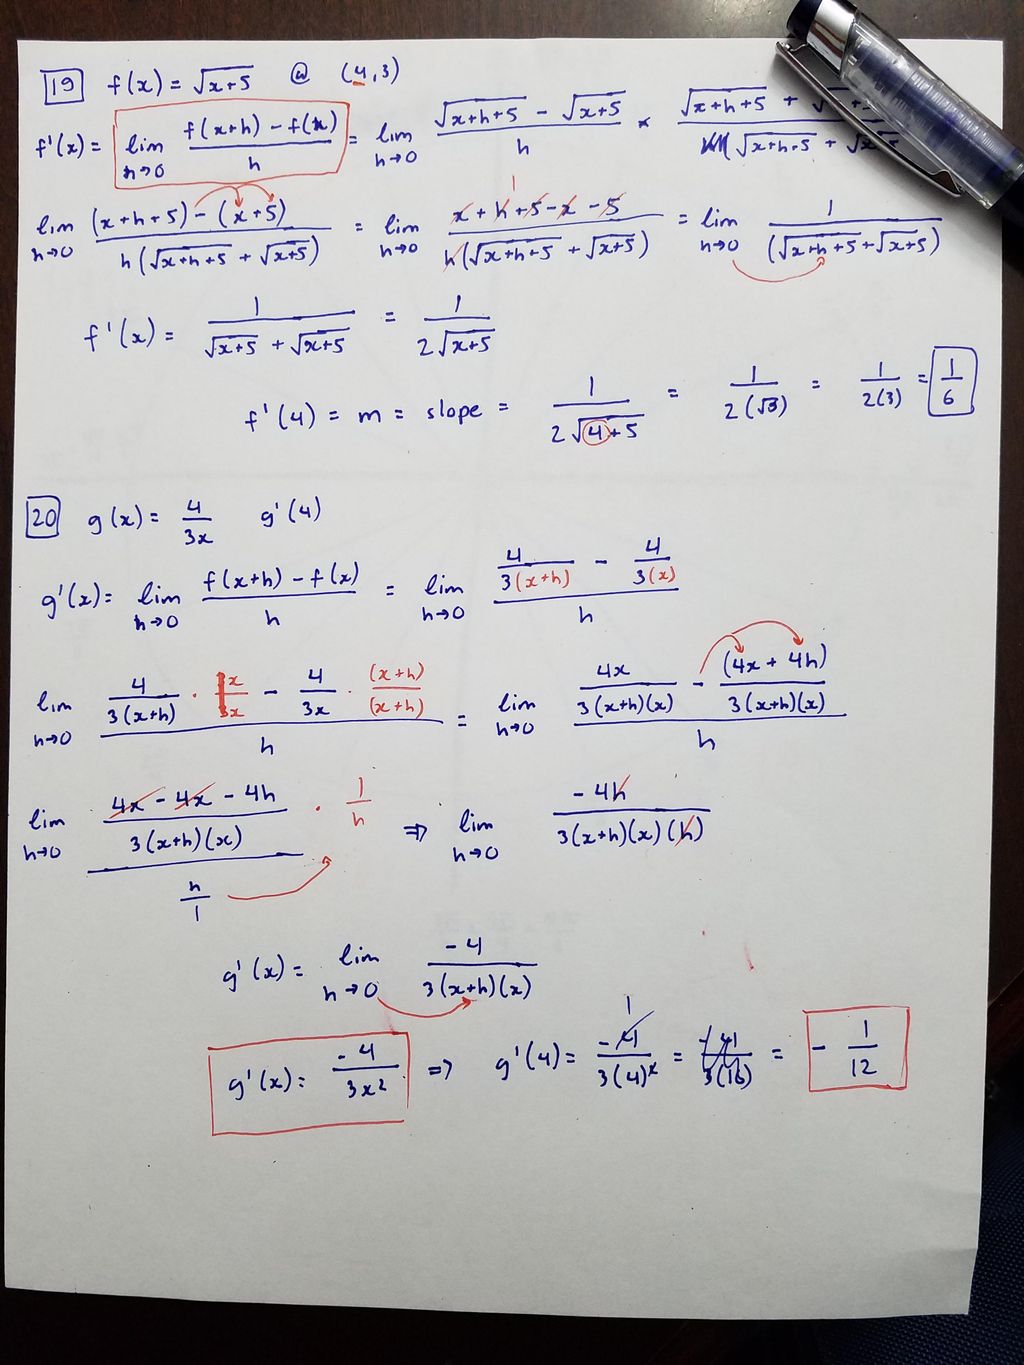 19 f(x) = √(x+5) @ (4,3)
f'(x) = lim h→0 (f(x+h) - f(x))/h = lim h→0 (√(x+h+5) - √(x+5))/h × (√(x+h+5) + √)/(√(x+h+5) + √)
lim h→0 ((x+h+5) - (x+5))/(h(√(x+h+5) + √(x+5))) = lim h→0 (x+h+5-x-5)/(h(√(x+h+5) + √(x+5))) = lim h→0 1/(√(x+h+5)+√(x+5))
f'(x) = 1/(√(x+5) + √(x+5)) = 1/(2√(x+5))
f'(4) = m = slope = 1/(2√(4+5)) = 1/(2(√)) = 1/(2(3)) = 1/6
20 g(x) = 4/(3x) g'(4)
g'(x) = lim h→0 (f(x+h) - f(x))/h = lim h→0 (4/(3(x+h)) - 4/(3(x)))/h
lim h→0 (4/(3(x+h)) · x/x - 4/(3x) · (x+h)/(x+h))/h = lim h→0 (4x/(3(x+h)(x)) - (4x+4h)/(3(x+h)(x)))/h
lim h→0 ((4x - 4x - 4h)/(3(x+h)(x)))/(h/1) · 1/h ⇒ lim h→0 -4h/(3(x+h)(x)(h))
g'(x) = lim h→0 -4/(3(x+h)(x))
g'(x) = -4/(3x²) ⇒ g'(4) = -4/(3(4)²) 1 = -41/(3(16)) = -1/12